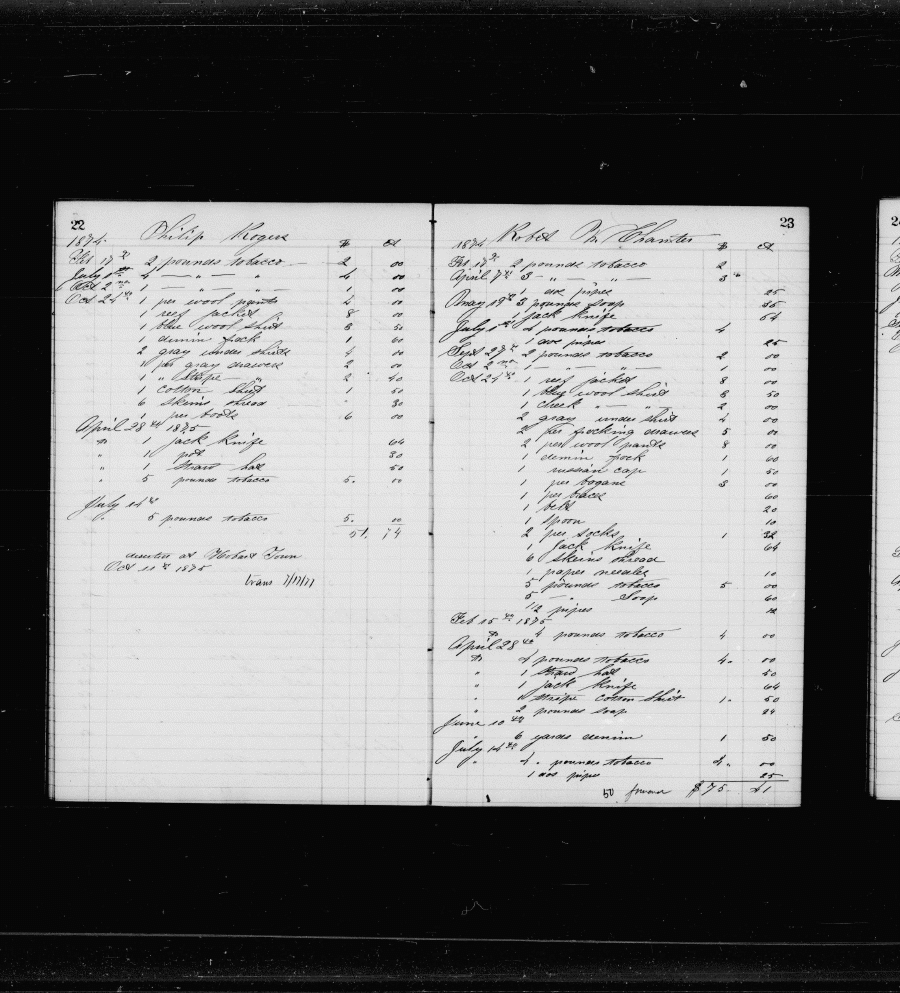 22
Philip Rogers
1874. $ ct
Feb 17th 2 pounds tobacco 2 00
July 1st 4 — " — " 4 00
Oct 2nd 1 — " — " — 1 00
Oct 24th 1 per wool pants 4 00
1 reef jacket 8 00
1 blue wool shirt 3 50
1 denim frock 1 60
2 gray under shirts 4 00
1 per gray drawers 2 00
1 " stripe — " 2 40
1 cotton shirt 1 50
6 skeins thread 30
1 per boots 6 00
April 28th 1875
to 1 jack knife 64
" 1 pot 30
" 1 straw hat 50
" 5 pounds tobacco 5. 00
July 14th
" 5 pounds tobacco 5. 00
51. 74
deserted at Hobart Town
Oct 11th 1875
23
1874 Robert $ ct
Feb 17th 2 pounds tobacco 2
April 7th 3 — " — " — 3
1 dos pipes 25
May 19th 3 pounds soap 35
1 jack knife 64
July 1st 4 pounds tobacco 4
1 dos pipes 25
Sept 27th 2 pounds tobacco 2 00
Oct 2nd 1 — " — " — 1 00
Oct 24th 1 reef jacket 8 00
1 blue wool shirt 3 50
1 check " — " 2 00
2 gray under shirt 4 00
2 per frocking drawers 5 00
2 per wool pants 8 00
1 denim frock 1 60
1 russian cap 1 50
1 per brogans 3 00
1 per braces 60
1 belt 20
1 spoon 10
2 per socks 1 32
1 jack knife 64
6 skeins thread
1 paper needles 10
5 pounds tobacco 5 00
5 — " Soap 60
1/2 pipes 12
Feb 15th 1875
to 4 pounds tobacco 4 00
April 28th
to 4 pounds tobacco 4. 00
" 1 straw hat 50
" 1 jack knife 64
" 1 stripe cotton shirt 1. 50
" 2 pounds soap 24
June 10th
" 6 yards denim 1 50
July 14th
" 4. pounds tobacco 4. 00
1 dos pipes 25
50 forward $75. 41